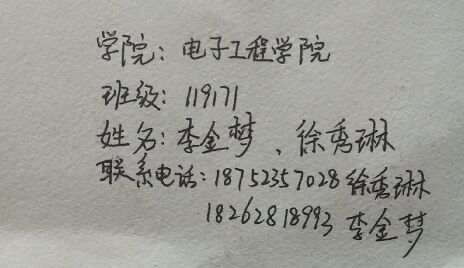 学院：电子工程学院
班级：119171
姓名：李金梦、徐秀琳
联系电话：18752357028 徐秀琳
18262818993 李金梦